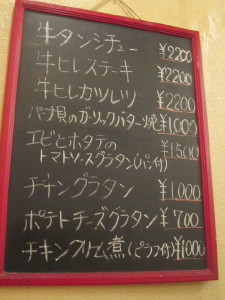 牛タンシチュー ¥2200
牛ヒレステーキ ¥2200
牛ヒレカツレツ ¥2200
パーナ貝のガーリックバター焼 ¥1000
エビとホタテの
トマトソースグラタン(パン付) ¥1500
チキングラタン ¥1,000
ポテトチーズグラタン ¥700
チキンクリーム煮(ピラフ付) ¥1000